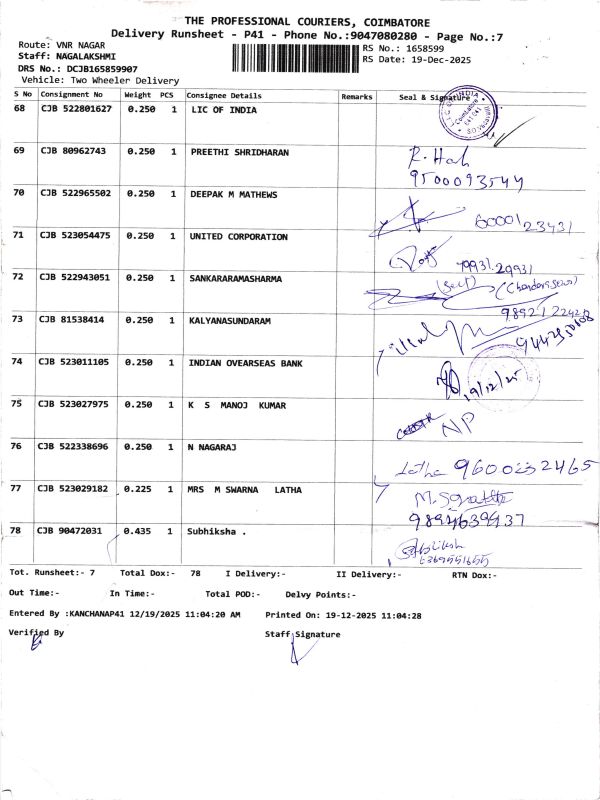 THE PROFESSIONAL COURIERS, COIMBATORE
Delivery Runsheet - P41 - Phone No.:9047080280 - Page No.:7
Route: VNR NAGAR
RS No.: 1658599
Staff: NAGALAKSHMI
RS Date: 19-Dec-2025
DRS No.: DCJB165859907
Vehicle: Two Wheeler Delivery
S No Consignment No Weight PCS Consignee Details Remarks Seal & Signature
68 CJB 522801627 0.250 1 LIC OF INDIA
69 CJB 80962743 0.250 1 PREETHI SHRIDHARAN
9500093544
70 CJB 522965502 0.250 1 DEEPAK M MATHEWS
6000123431
71 CJB 523054475 0.250 1 UNITED CORPORATION
79931 29931
72 CJB 522943051 0.250 1 SANKARARAMASHARMA
(Self)
73 CJB 81538414 0.250 1 KALYANASUNDARAM
74 CJB 523011105 0.250 1 INDIAN OVEARSEAS BANK
19/12/25
75 CJB 523027975 0.250 1 K S MANOJ KUMAR
NP
76 CJB 522338696 0.250 1 N NAGARAJ
Latha 9600232465
77 CJB 523029182 0.225 1 MRS M SWARNA LATHA
9894639437
78 CJB 90472031 0.435 1 Subhiksha .
Tot. Runsheet:- 7 Total Dox:- 78 I Delivery:- II Delivery:- RTN Dox:-
Out Time:- In Time:- Total POD:- Delvy Points:-
Entered By :KANCHANAP41 12/19/2025 11:04:20 AM Printed On: 19-12-2025 11:04:28
Verified By Staff Signature